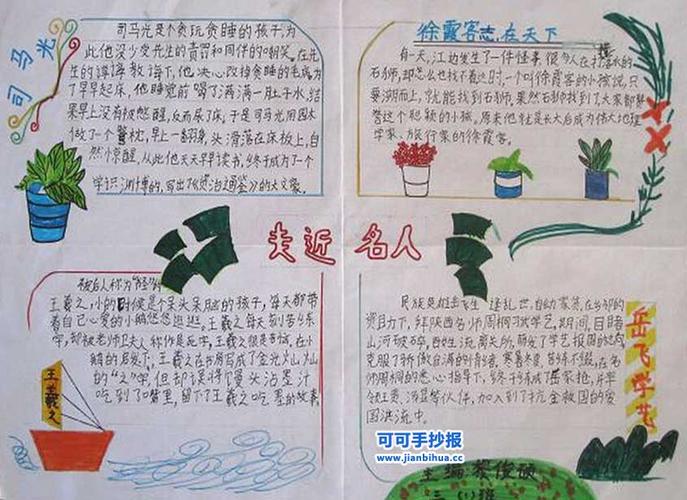 司马光
司马光是个贪玩贪睡的孩子,为
此他没少受先生的责罚和同伴的嘲笑。在先
生的谆谆教诲下,他决心改掉贪睡的毛病,为
了早早起床,他睡觉前喝了满满一肚子水,结
果早上没有被憋醒,反而尿了床,于是司马光用圆木
做了一个警枕,早上一翻身,头滑落在床板上,自
然惊醒,从此他天天早读书,终于成为了一个
学识渊博的,写出《资治通鉴》的大文豪。
徐霞客志在天下
有一天,江边发生了一件怪事,很多人在打落水的
石狮,却怎么也找不着
一个叫徐霞客的小孩说,只
要溯而上,就能找到石狮,果然石狮找到了大家都
誉这个聪颖的小孩,原来他就是长大后成为伟大地理
学家、旅行家的徐霞客。
走近名人
被后人称为
王羲之,小的时候是个呆头呆脑的孩子,每天都带
着自己心爱的小鹅悠悠逛逛。王羲之每天刻苦练
字,却被老师卫夫人称作是死字,王羲之很是苦恼,在小
鹅的启发下,王羲之在书房写成了金光灿灿
的“之”字,但却误将馒头沾墨汁
吃到了嘴里,留下了王羲之吃墨的故事。
王羲之
岳飞学艺
民族英雄岳飞生逢乱世,自幼家贫,在乡邻的
资助下,拜陕西名师周桐习武学艺,期间,目睹
山河破碎,百姓流离失所,萌发了学艺报国的志向,
克服了骄傲自满的情绪,寒暑冬夏,苦练不缀,在名
师周桐的悉心指导下,终于练成了岳家枪,并率
领王贵、汤显等伙伴,加入到了抗金救国的爱
国洪流中。
可可手抄报
www.jianbihua.cc
主编:蔡俊硕
三(1)班